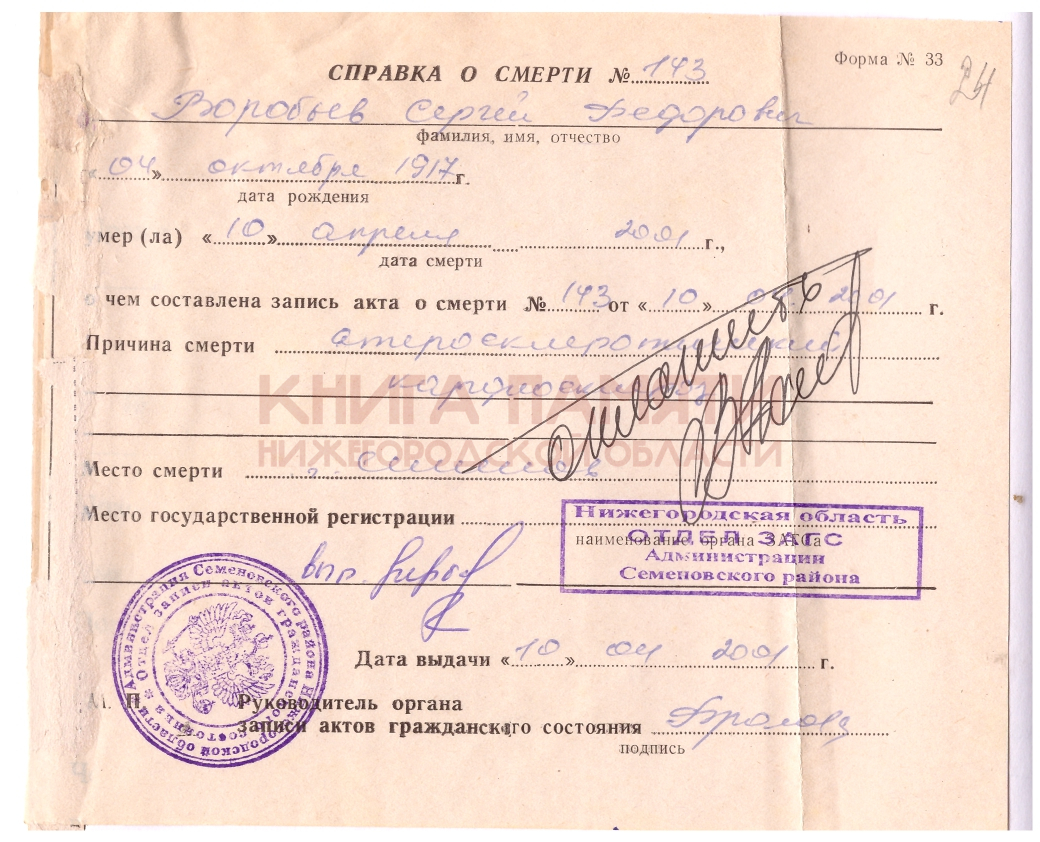 Форма № 33
24
СПРАВКА О СМЕРТИ № 143
Воробьев Сергей Федорович
фамилия, имя, отчество
«04» октября 1917 г.
дата рождения
умер (ла) «10» апреля 2001 г.,
дата смерти
о чем составлена запись акта о смерти № 143 от «10» 04 2001 г.
Причина смерти атеросклеротический
кардиосклероз
КНИГА ПАМЯТИ
НИЖЕГОРОДСКОЙ ОБЛАСТИ
Место смерти г. Семенов
Место государственной регистрации
наименование органа ЗАГСа
Нижегородская область
ОТДЕЛ ЗАГС
Администрации
Семеновского района
оплатить
Дата выдачи «10» 04 2001 г.
М. П
Руководитель органа
записи актов гражданского состояния Фролова
подпись
Администрация Семеновского района Нижегородской области
Отдел записи актов гражданского состояния